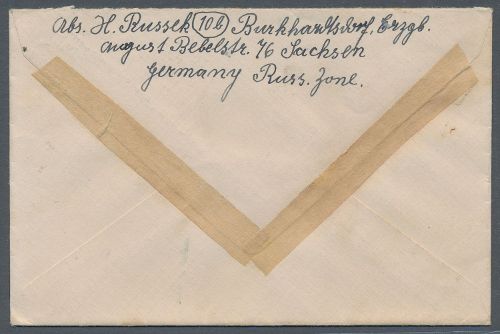 Abs. H. Russek (10b) Burkhardtsdorf, Erzgb.
August Bebelstr. 76 Sachsen
Germany Russ. Zone.